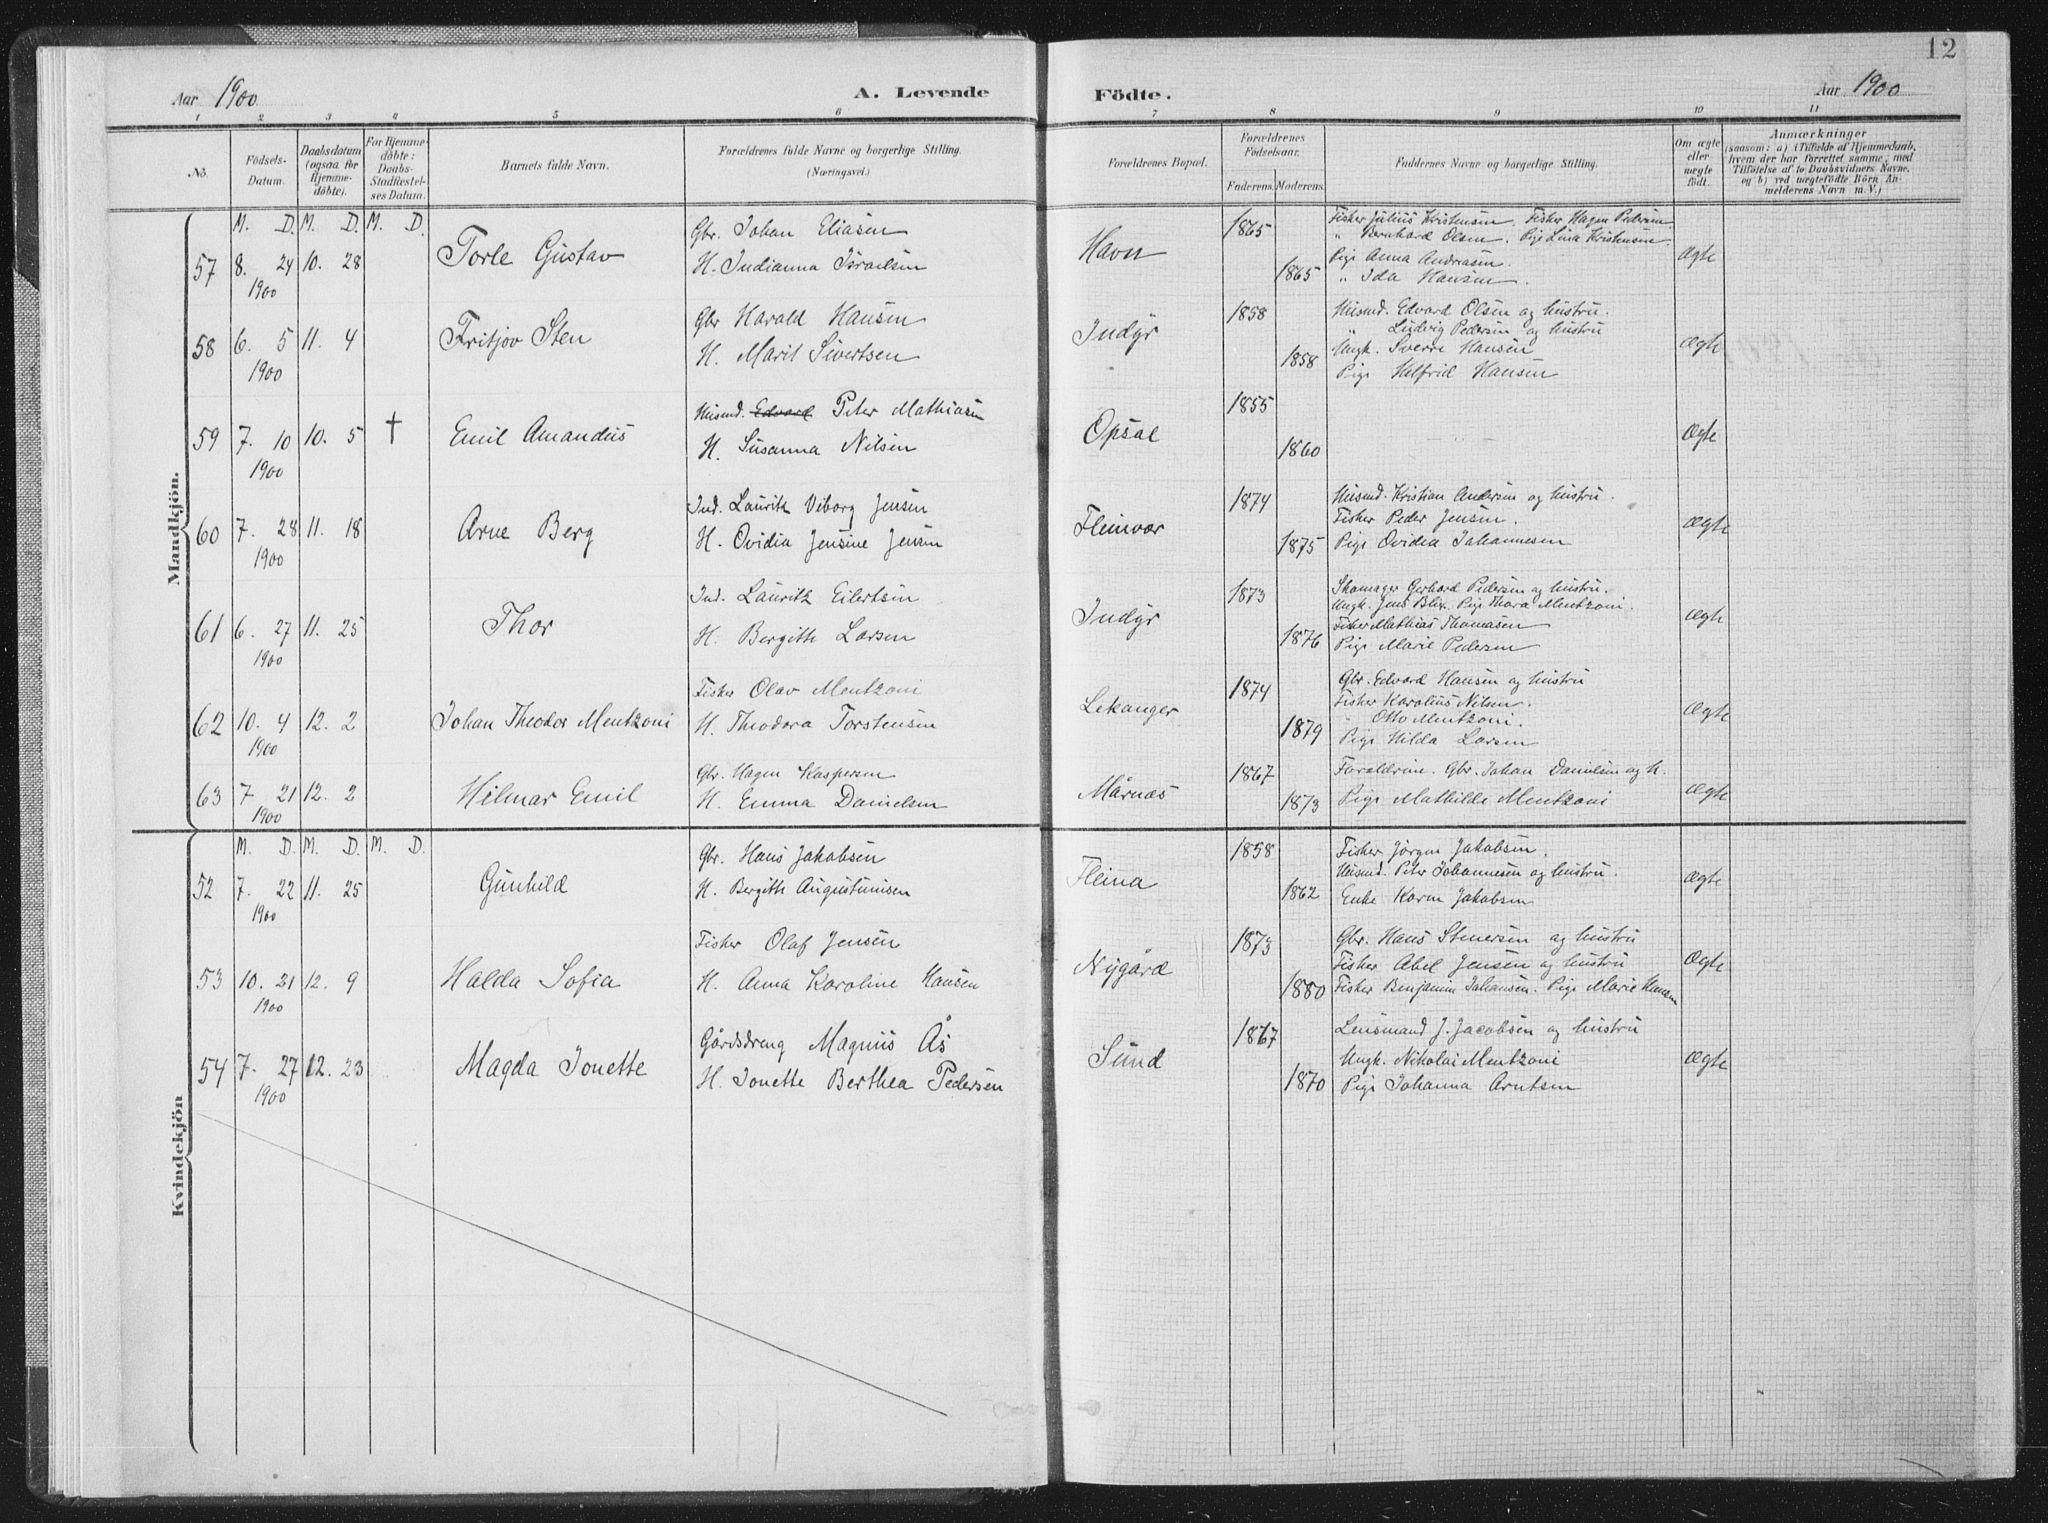 12
Aar 1900 A. Levende Födte. Aar 1900
1 2 3 4 5 6 7 8 9 10 11
No.
Födsels-Datum.
Daabsdatum (ogsaa for Hjemmedöbte).
For Hjemmedöbte: Daabs-Stadfæstelses Datum.
Barnets fulde Navn.
Forældrenes fulde Navne og borgerlige Stilling.
(Næringsvei.)
Forældrenes Bopæl.
Forældrenes Födselsaar.
Faderens. Moderens.
Faddernes Navne og borgerlige Stilling.
Om ægte eller uægte födt.
Anmærkninger
(saasom: a) i Tilfælde af Hjemmedaab,
hvem der har forrettet samme, med
Tilföielse af to Daabsvidners Navne,
og b) ved uægtefödte Börn An-
melderens Navn m. V.)
Mandkjön.
M. D. M. D. M. D.
57 8. 24 1900 10. 28 Torle Gustav
Gbr. Johan Eliasen
H. Indianna Israelsen
Havn 1865 1865
Fisker Julius Kristensen. Fisker Hagen Pedersen
" Bernhard Olsen. Pige Lina Kristensen
Pige Anna Andreasen.
" Ida Hansen.
Ægte
58 6. 5 1900 11. 4 Fritjov Sten
Gbr Harald Hansen
H. Marit Sivertsen
Indyr 1858 1858
Husmd. Edvard Olsen og hustru.
" Ludvig Pedersen og hustru
Ungk. Sverre Hansen
Pige Halfrid Hansen
Ægte
59 7. 10 1900 10. 5 † Emil Amandus
Husmd. Edvard Peter Mathiasen
H. Susanna Nilsen
Opsal 1855 1860
Ægte
60 7. 28 1900 11. 18 Arne Berg
Ind. Lauritz Viborg Jensen
H. Ovidia Jensine Jensen
Fleinvær 1874 1875
Husmd. Kristian Andersen og hustru.
Fisker Peder Jensen.
Pige Ovidia Johannesen
Ægte
61 6. 27 1900 11. 25 Thor
Ind. Lauritz Eilertsen
H. Bergith Larsen
Indyr 1873 1876
Skomager Gerhard Pedersen og hustru.
Ungk. Jens Blix. Pige Thora Mentzoni.
Fisker Mathias Thomasen
Pige Marie Pedersen
Ægte
62 10. 4 1900 12. 2 Johan Theodor Mentzoni
Fisker Olav Mentzoni
H. Theodora Torstensen
Lekanger 1874 1879
Gbr. Edvard Hansen og hustru
Fisker Karolius Nilsen.
" Otto Mentzoni.
Pige Hilda Larsen
Ægte
63 7 21 1900 12. 2 Hilmar Emil
Gbr. Hagen Kaspersen
H. Emma Danielsen
Mårnæs 1867 1873
Forældrene. Gbr. Johan Danielsen og h.
Pige Mathilde Mentzoni
Ægte
Kvindekjön
M. D. M. D. M. D.
52 7. 22 1900 11. 25 Gunhild
Gbr. Hans Jakobsen
H. Bergith Augustinusen
Fleina 1858 1862
Fisker Jørgen Jakobsen.
Husmd. Peter Johannesen og hustru.
Enke Karen Jakobsen
Ægte
53 10. 21 1900 12. 9 Halda Sofia
Fisker Olaf Jensen
H. Anna Karoline Hansen
Nygård 1873 1880
Gbr. Hans Stenersen og hustru
Fisker Abel Jensen og hustru
Fisker Benjamin Johansen. Pige Marie Hansen
Ægte
54 7. 27 1900 12. 23 Magda Jonette
Gårdsdreng Magnus Ås
H. Jonette Berthea Pedersen
Sund 1867 1870
Lensmand J. Jacobsen og hustru
Ungk. Nikolai Mentzoni
Pige Johanna Arntsen
Ægte